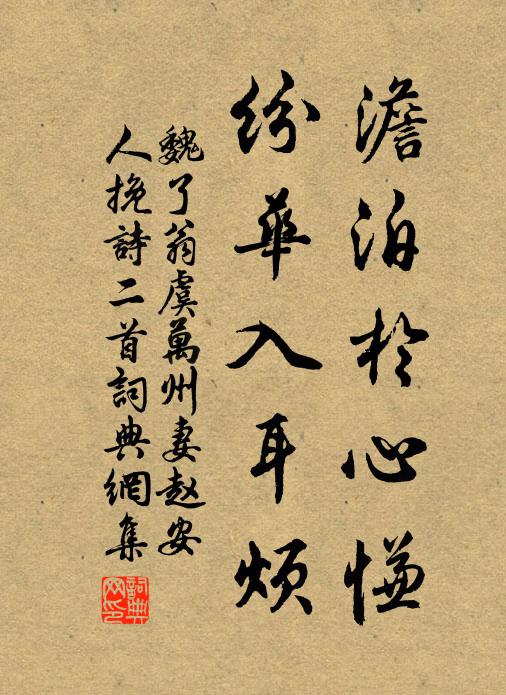 澹泊於心慊
紛華入耳煩
魏了翁虞萬州妻趙安
人挽詩二首詞典網集
詞典網印